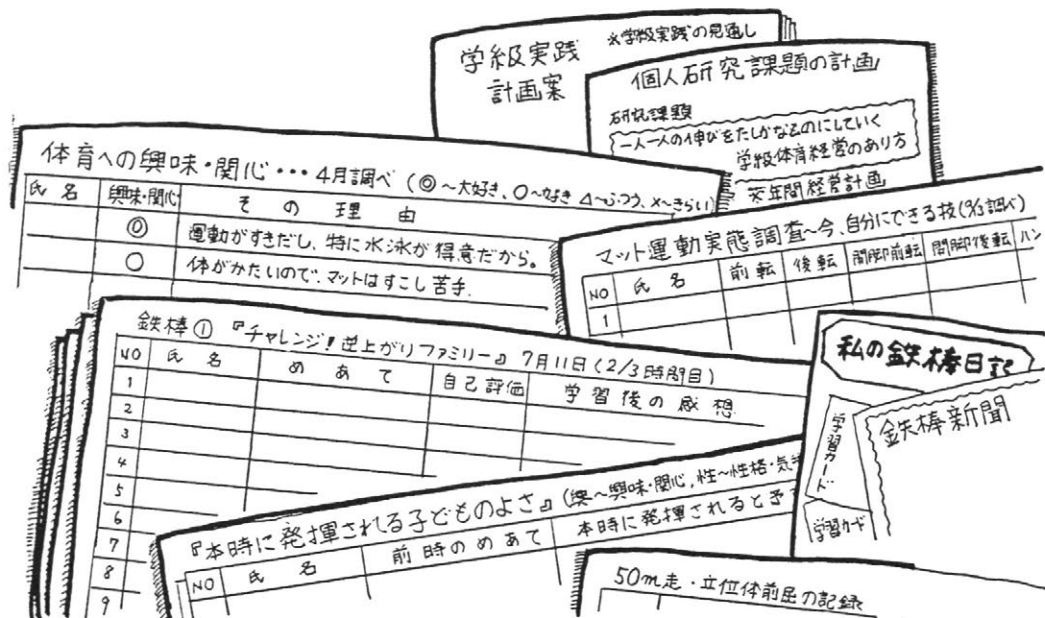 学級実践
計画案
※学級実践の見通し
個人研究課題の計画
研究課題
一人一人の伸びをたしかなものにしていく
学級体育経営のあり方
※年間経営計画
体育への興味・関心・・・4月調べ(◎〜大好き、○〜好き △〜ふつう、×〜きらい)
氏名 興味・関心 その理由
◎ 運動がすきだし、特に水泳が得意だから。
○ 体がかたいので、マットはすこし苦手.
マット運動実態調査〜今、自分にできる技(9/3調べ)
NO 氏名 前転 後転 開脚前転 開脚後転 ハン
1
鉄棒① 『チャレンジ!逆上がりファミリー』 7月11日(2/3時間目)
NO 氏名 めあて 自己評価 学習後の感想
1
2
3
4
5
6
7
8
9
私の鉄棒日記
学習カード
学習カード
鉄棒新聞
『本時に発揮される子どものよさ』(興〜興味・関心,性〜性格・気
NO 氏名 前時のめあて 本時に発揮されると予
50m走・立位体前屈の記録